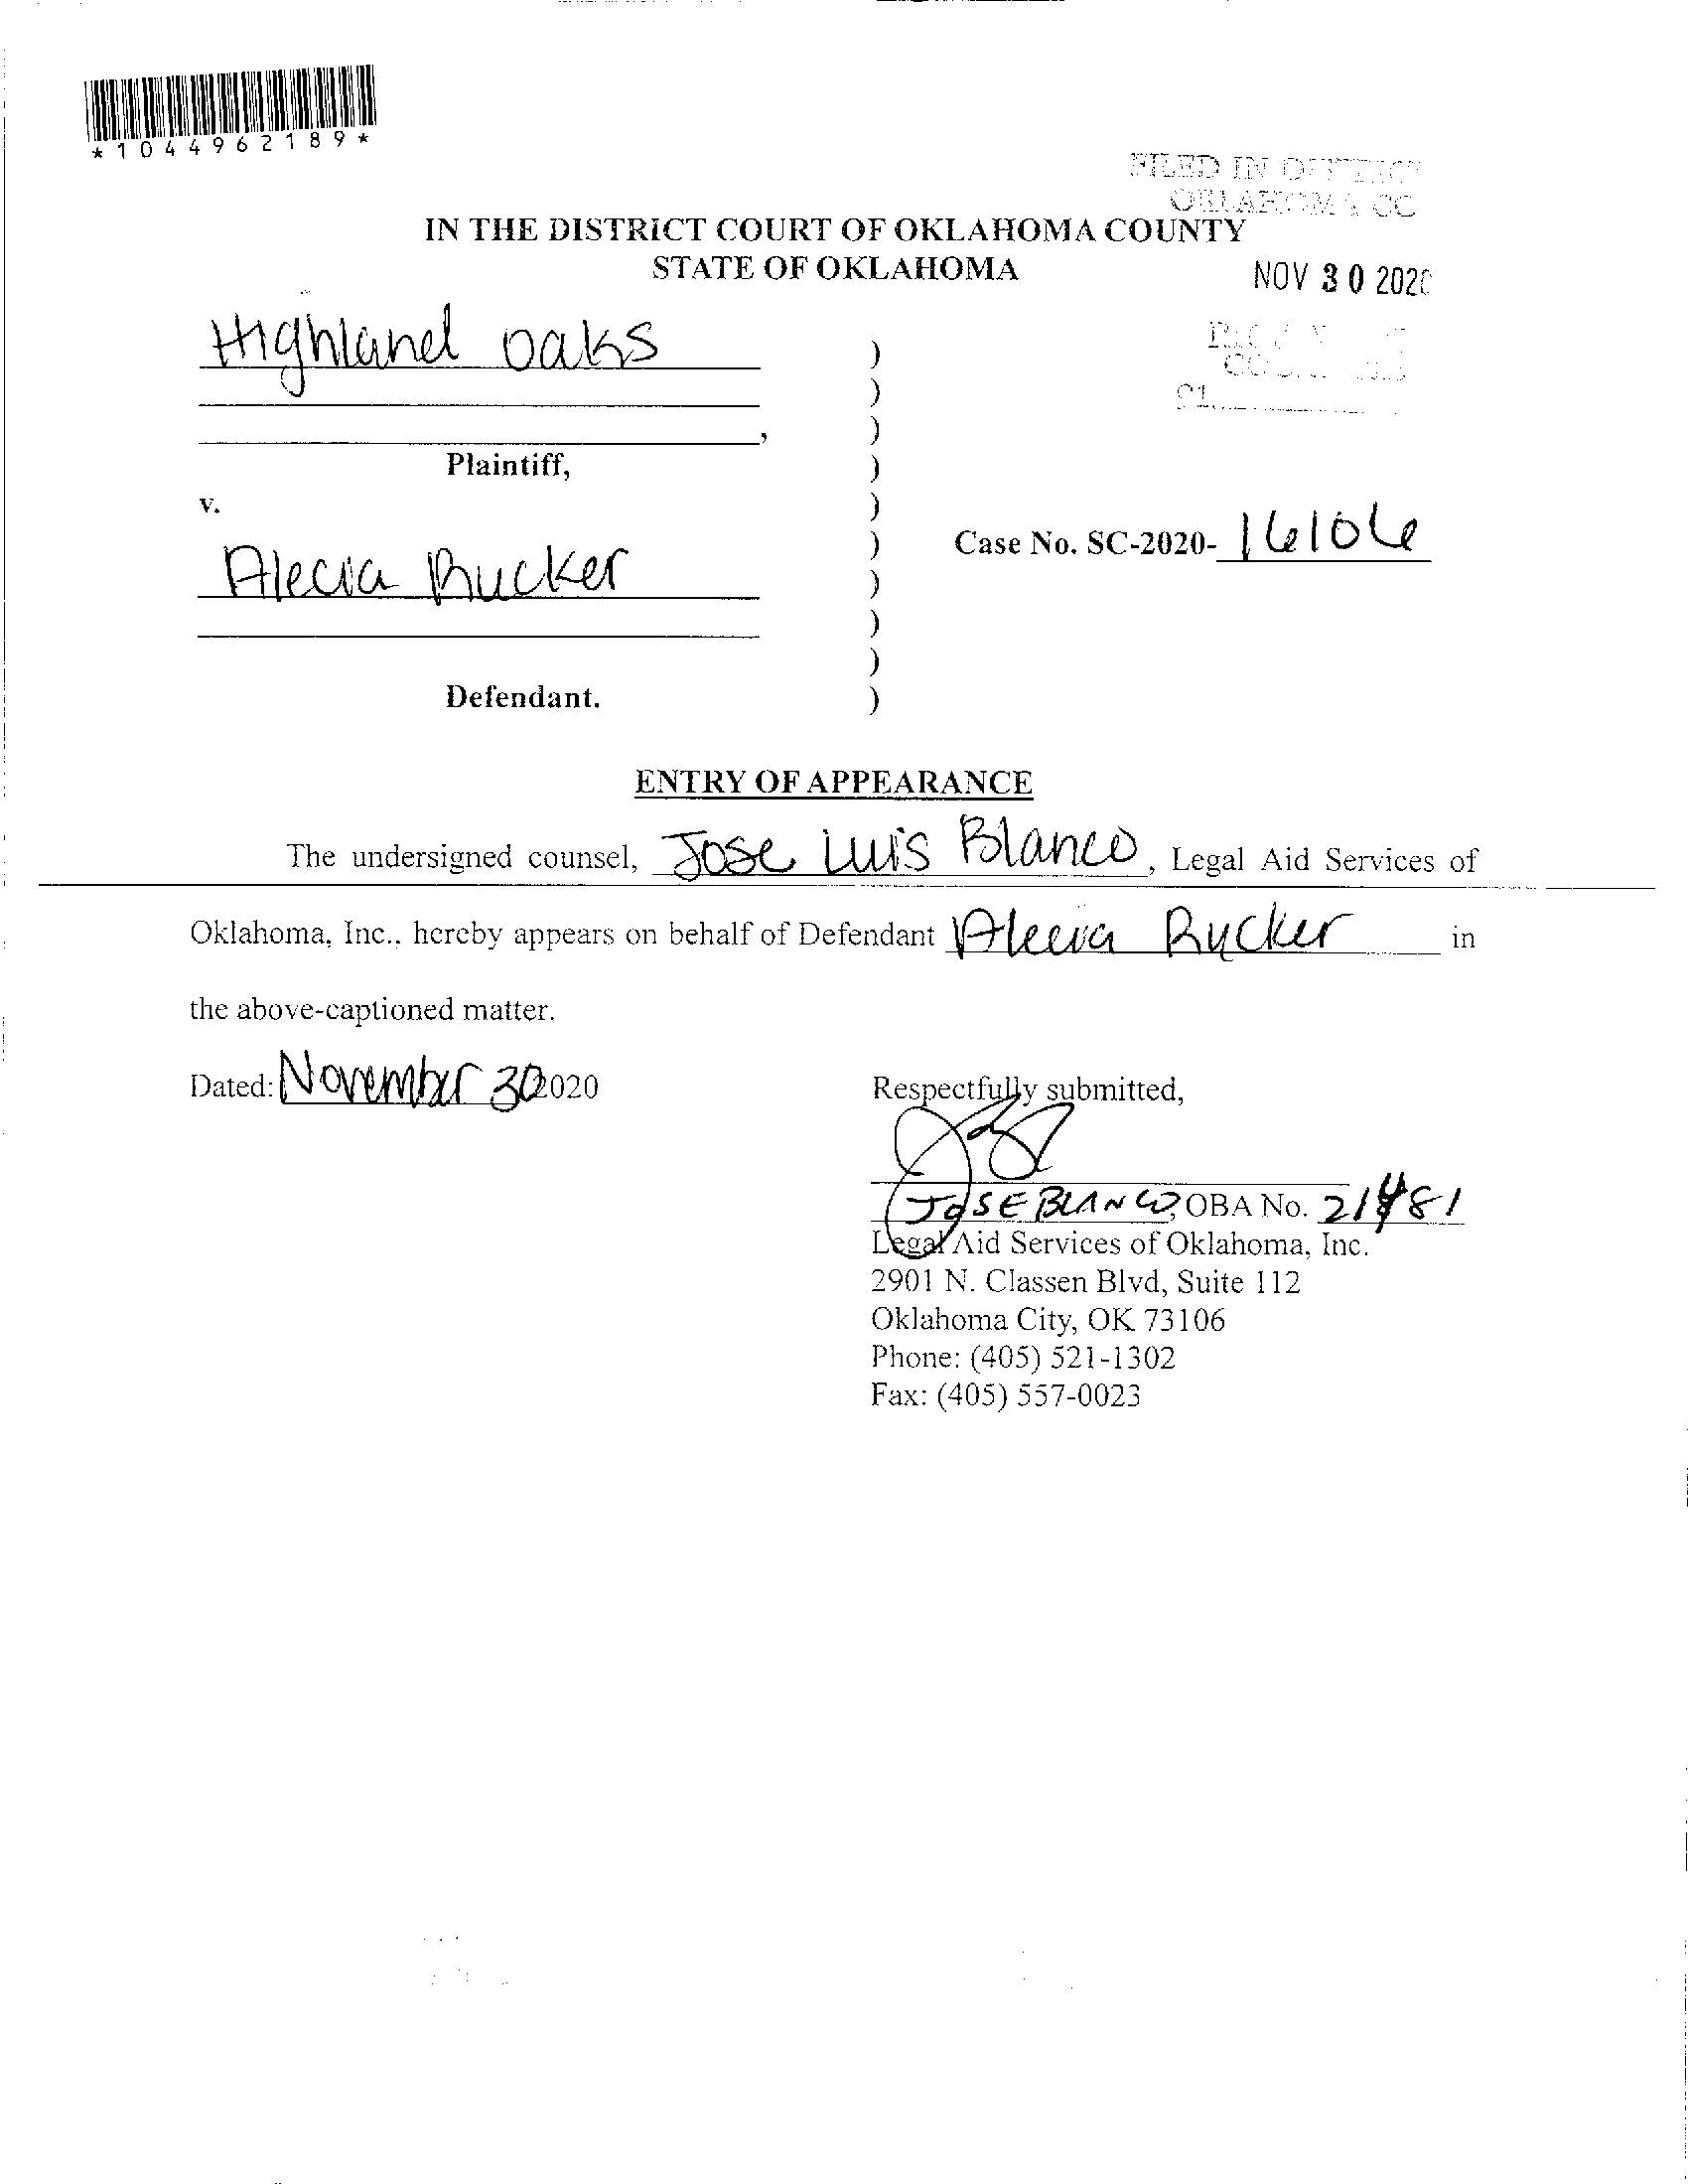 *1044962189*
FILED IN
IN THE DISTRICT COURT OF OKLAHOMA COUNTY
STATE OF OKLAHOMA
NOV 30 2020
Highland Oaks
,
Plaintiff,
v.
Case No. SC-2020- 16106
Alecia Rucker
Defendant.
ENTRY OF APPEARANCE
The undersigned counsel, Jose Luis Blanco, Legal Aid Services of
Oklahoma, Inc., hereby appears on behalf of Defendant Alecia Rucker in
the above-captioned matter.
Dated: November 30 2020
Respectfully submitted,
JOSE BLANCO, OBA No. 21481
Legal Aid Services of Oklahoma, Inc.
2901 N. Classen Blvd, Suite 112
Oklahoma City, OK 73106
Phone: (405) 521-1302
Fax: (405) 557-0023